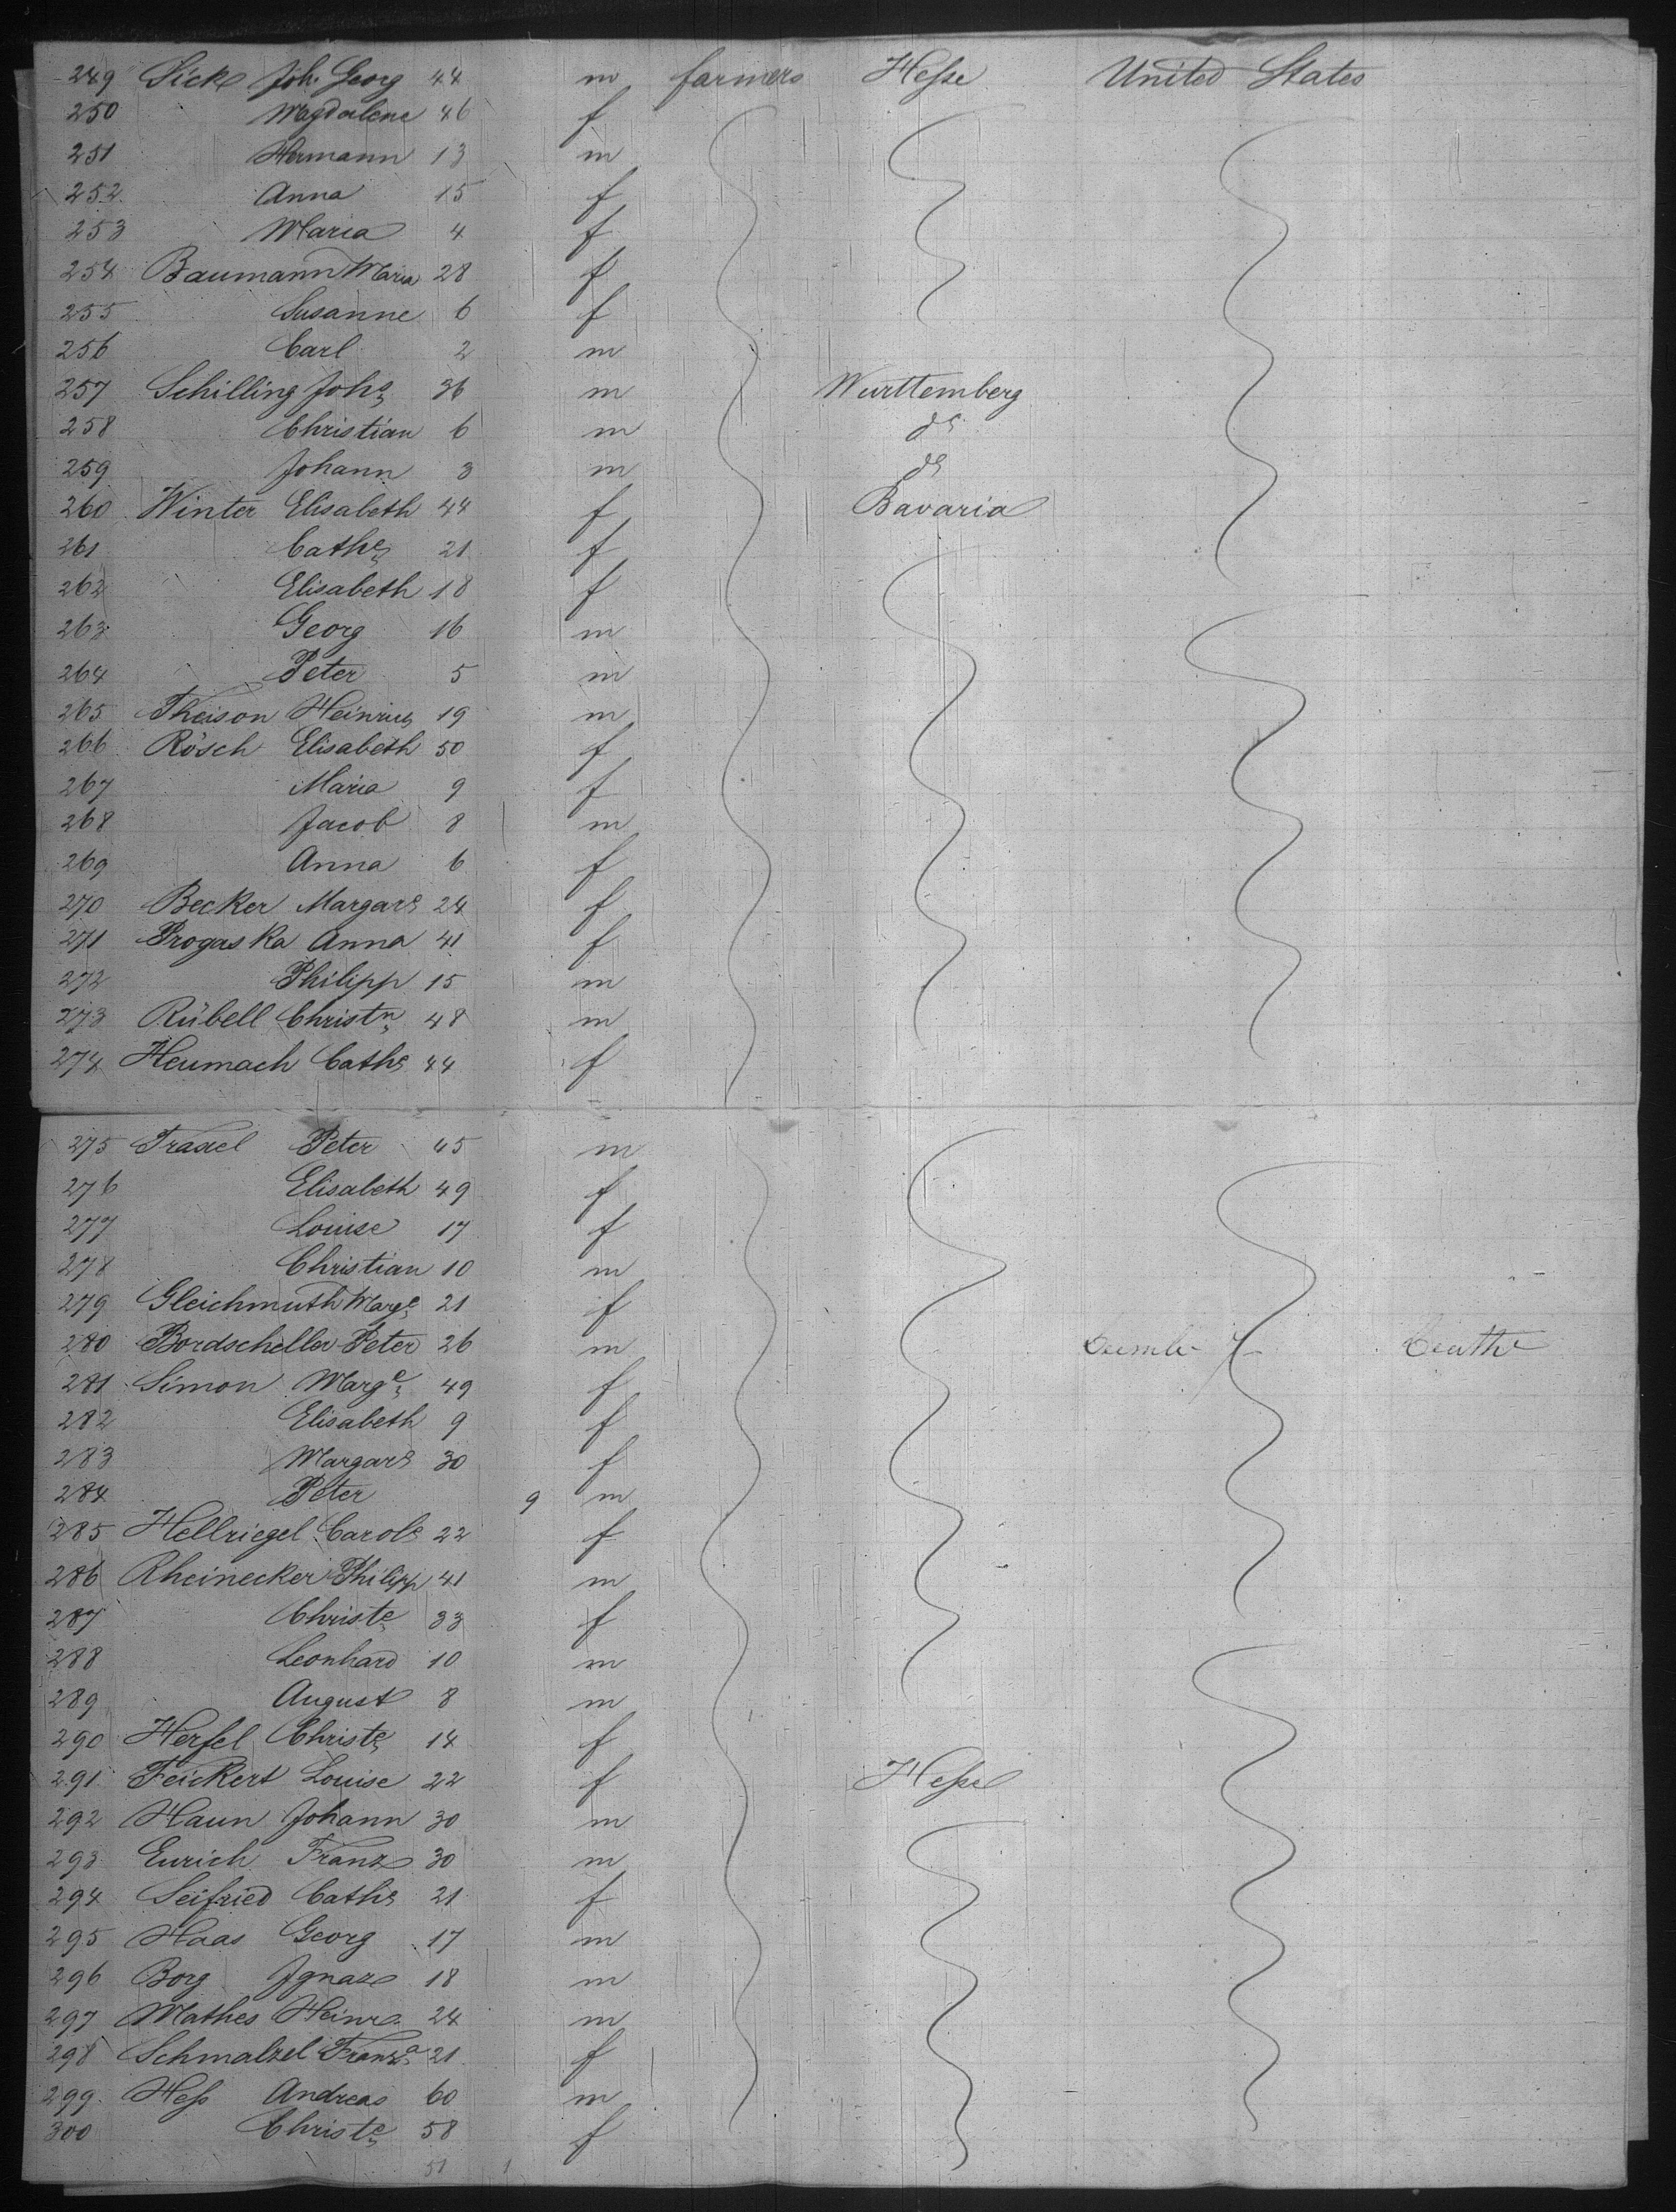 249 Sick Joh. Georg 44 m farmers Hesse United States
250 Magdalene 46 f
251 Hermann 13 m
252 Anna 15 f
253 Maria 4 f
254 Baumann Maria 28 f
255 Susanne 6 f
256 Carl 2 m
257 Schilling Johs 36 m Wurttemberg
258 Christian 6 m do
259 Johann 3 m do
260 Winter Elisabeth 44 f Bavaria
261 Cathe 21 f
262 Elisabeth 18 f
263 Georg 16 m
264 Peter 5 m
265 Theison Heinrich 19 m
266 Rösch Elisabeth 50 f
267 Maria 9 f
268 Jacob 8 m
269 Anna 6 f
270 Becker Margare 24 f
271 Progaska Anna 41 f
272 Philipp 15 m
273 Rübell Christn 48 m
274 Heumach Cathe 44 f
275 Peter 45 m
276 Elisabeth 49 f
277 Louise 17 f
278 Christian 10 m
279 Gleichmuth Marge 21 f
280 Bordscheller Peter 26 m
281 Simon Marge 49 f
282 Elisabeth 9 f
283 Margare 30 f
284 Peter 9 m
285 Hellriegel Carole 22 f
286 Rheinecker Philipp 41 m
287 Christe 33 f
288 Leonhard 10 m
289 August 8 m
290 Herfel Christe 14 f
291 Feickert Louise 22 f Hesse
292 Haun Johann 30 m
293 Eurich Franz 30 m
294 Seifried Cathe 21 f
295 Haas Georg 17 m
296 Borg Ignaz 18 m
297 Mathes Heinr. 24 m
298 Schmalzel Franza 21 f
299 Hess Andreas 60 m
300 Christe 58 f
51 1